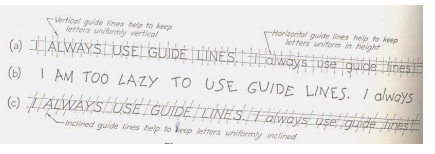 Vertical guide lines help to keep
letters uniformly vertical
Horizontal guide lines help to keep
letters uniform in height
(a) I ALWAYS USE GUIDE LINES. I always use guide lines!
(b) I AM TOO LAZY TO USE GUIDE LINES. I always
(c) I ALWAYS USE GUIDE LINES. I always use guide lines!
Inclined guide lines help to keep letters uniformly inclined